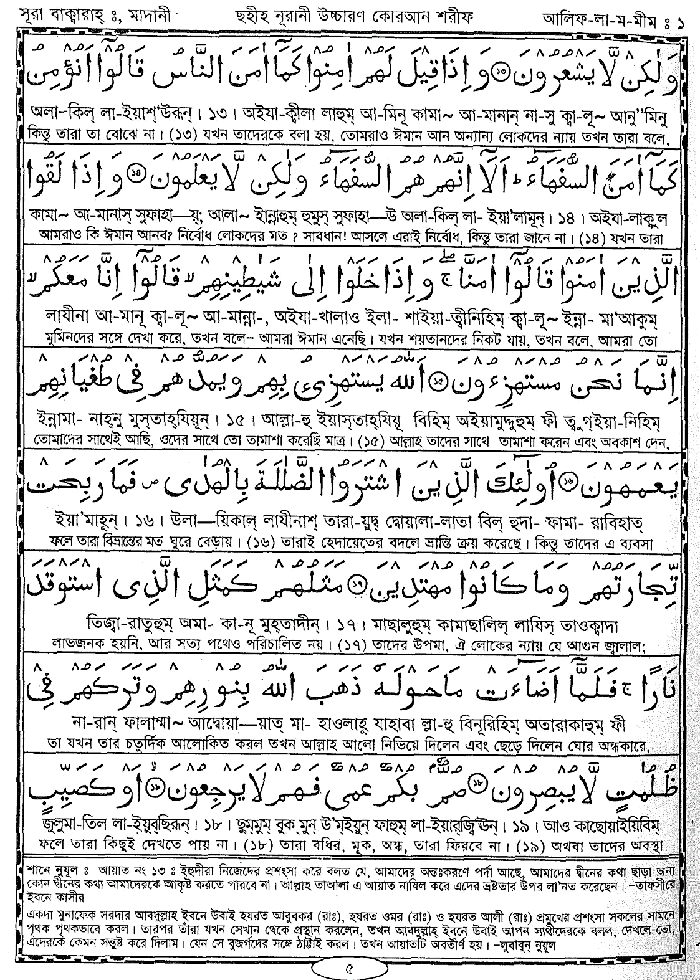 সূরা বাক্বারাহ্ ঃ, মাদানী ছহীহ নূরানী উচ্চারণ কোরআন শরীফ আলিফ-লা-ম-মীম ঃ ১
وَلٰكِنْ لَّا يَشْعُرُوْنَ ⑫ وَاِذَا قِيْلَ لَهُمْ اٰمِنُوْا كَمَآ اٰمَنَ النَّاسُ قَالُوْٓا اَنُؤْمِنُ
অলা-কিল্ লা-ইয়াশ্'উরূন্। ১৩। অইযা-ক্বীলা লাহুম্ আ-মিনূ কামা~ আ-মানান্ না-সু ক্বা-লূ~ আনু''মিনু
কিন্তু তারা তা বোঝে না। (১৩) যখন তাদেরকে বলা হয়, তোমরাও ঈমান আন অন্যান্য লোকদের ন্যায় তখন তারা বলে,
كَمَآ اٰمَنَ السُّفَهَآءُ ؕ اَلَآ اِنَّهُمْ هُمُ السُّفَهَآءُ وَلٰكِنْ لَّا يَعْلَمُوْنَ ⑬ وَاِذَا لَقُوا
কামা~ আ-মানাস্ সুফাহা—য়্; আলা~ ইন্নাহুম্ হুমুস্ সুফাহা—উ অলা-কিল্ লা- ইয়া'লামূন্। ১৪। অইযা-লাকুল
আমরাও কি ঈমান আনব? নির্বোধ লোকদের মত? সাবধান! আসলে এরাই নির্বোধ, কিন্তু তারা জানে না। (১৪) যখন তারা
الَّذِيْنَ اٰمَنُوْا قَالُوْٓا اٰمَنَّا ۚۖ وَاِذَا خَلَوْا اِلٰى شَيٰطِيْنِهِمْ ۙ قَالُوْٓا اِنَّا مَعَكُمْ ۙ
লাযীনা আ-মানূ ক্বা-লূ~ আ-মান্না-, অইযা-খালাও ইলা- শাইয়া-ত্বীনিহিম্ ক্বা-লূ~ ইন্না- মা'আকুম্
মুমিনদের সঙ্গে দেখা করে, তখন বলে- আমরা ঈমান এনেছি। যখন শয়তানদের নিকট যায়, তখন বলে, আমরা তো
اِنَّمَا نَحْنُ مُسْتَهْزِءُوْنَ ⑭ اَللّٰهُ يَسْتَهْزِئُ بِهِمْ وَيَمُدُّهُمْ فِيْ طُغْيَانِهِمْ
ইন্নামা- নাহ্নু মুস্তাহ্যিয়ূন্। ১৫। আল্লা-হু ইয়াস্তাহ্যিয়ূ বিহিম্ অইয়ামুদ্দুহুম্ ফী ত্বুগ্ইয়া-নিহিম্
তোমাদের সাথেই আছি, ওদের সাথে তো তামাশা করেছি মাত্র। (১৫) আল্লাহ তাদের সাথে তামাশা করেন এবং অবকাশ দেন,
يَعْمَهُوْنَ ⑮ اُولٰٓئِكَ الَّذِيْنَ اشْتَرَوُا الضَّلٰلَةَ بِالْهُدٰى ۪ فَمَا رَبِحَتْ
ইয়া'মাহূন্। ১৬। উলা—য়িকাল্ লাযীনাশ্ তারা-য়ুদ্ব্ দ্বোয়ালা-লাতা বিল্ হুদা- ফামা- রাবিহাত্
ফলে তারা বিভ্রান্তের মত ঘুরে বেড়ায়। (১৬) তারাই হেদায়েতের বদলে ভ্রান্তি ক্রয় করেছে। কিন্তু তাদের এ ব্যবসা
تِّجَارَتُهُمْ وَمَا كَانُوْا مُهْتَدِيْنَ ⑯ مَثَلُهُمْ كَمَثَلِ الَّذِى اسْتَوْقَدَ
তিজ্বা-রাতুহুম্ অমা- কা-নূ মুহ্তাদীন্। ১৭। মাছালুহুম্ কামাছালিল্ লাযিস্ তাওক্বাদা
লাভজনক হয়নি, আর সত্য পথেও পরিচালিত নয়। (১৭) তাদের উপমা, ঐ লোকের ন্যায় যে আগুন জ্বালাল;
نَارًا ۚ فَلَمَّآ اَضَآءَتْ مَا حَوْلَهٗ ذَهَبَ اللّٰهُ بِنُوْرِهِمْ وَتَرَكَهُمْ فِيْ
না-রান্ ফালাম্মা~ আদ্বোয়া—য়াত্ মা- হাওলাহূ যাহাবা ল্লা-হু বিনূরিহিম্ অতারাকাহুম্ ফী
তা যখন তার চতুর্দিক আলোকিত করল তখন আল্লাহ আলো নিভিয়ে দিলেন এবং ছেড়ে দিলেন ঘোর অন্ধকারে,
ظُلُمٰتٍ لَّا يُبْصِرُوْنَ ⑰ صُمٌّۢ بُكْمٌ عُمْيٌ فَهُمْ لَا يَرْجِعُوْنَ ⑱ اَوْ كَصَيِّبٍ
জুলুমা-তিল লা-ইয়ুবছিরূন্! ১৮। ছুম্মুম্ বুক মুন্ উ'ম্ইয়ুন্ ফাহুম্ লা-ইয়ার্জ্বি'ঊন্। ১৯। আও কাছোয়াইয়িবিম্
ফলে তারা কিছুই দেখতে পায় না। (১৮) তারা বধির, মূক, অন্ধ, তারা ফিরবে না। (১৯) অথবা তাদের অবস্থা
শানে নুযূল ঃ আয়াত নং ১৩ ঃ ইহুদীরা নিজেদের প্রশংসা করে বলত যে, আমাদের অন্তঃকরণে পর্দা আছে, আমাদের দ্বীনের কথা ছাড়া অন্য
কোন দ্বীনের কথা আমাদেরকে আকৃষ্ট করতে পারবে না। আল্লাহ তাআলা এ আয়াত নাযিল করে এদের ভ্রষ্টতার উপর লা'নত করেছেন। -তাফসীরে
ইবনে কাসীর
একদা মুনাফেক সরদার আবদুল্লাহ ইবনে উবাই হযরত আবুবকর (রাঃ), হযরত ওমর (রাঃ) ও হযরত আলী (রাঃ) প্রমুখের প্রশংসা সকলের সামনে
পৃথক পৃথকভাবে করল। তারপর তাঁরা যখন সেখান থেকে প্রস্থান করলেন, তখন আবদুল্লাহ ইবনে উবাই আপন সাথীদেরকে বলল, দেখলে তো
এদেরকে কেমন সন্তুষ্ট করে দিলাম। যেন সে বুজর্গদের সঙ্গে ঠাট্টাই করল। তখন আয়াতটি অবতীর্ণ হয়। -লুবাবুন নুযূল
৫